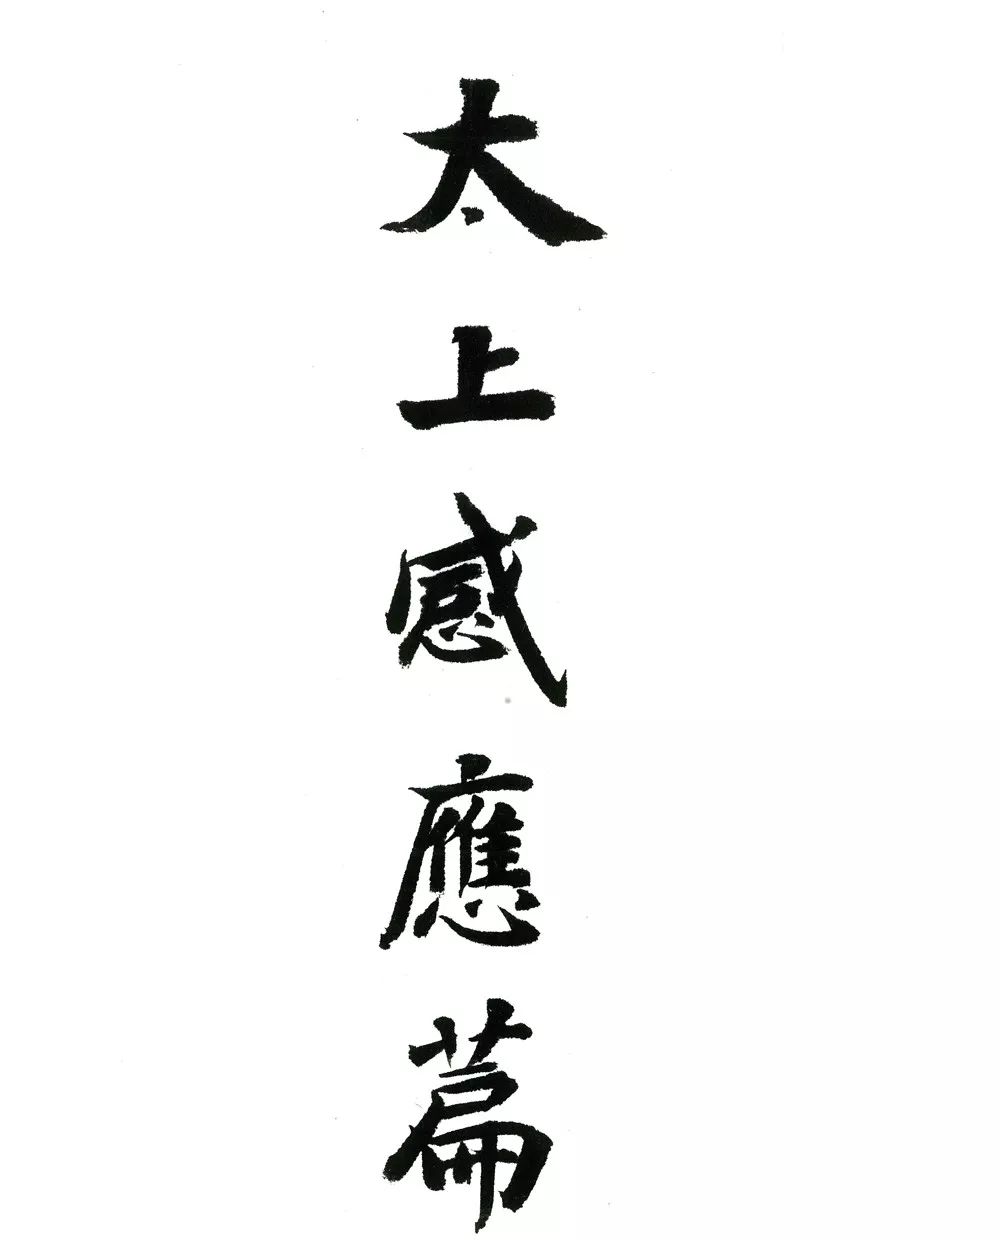 太上感應篇